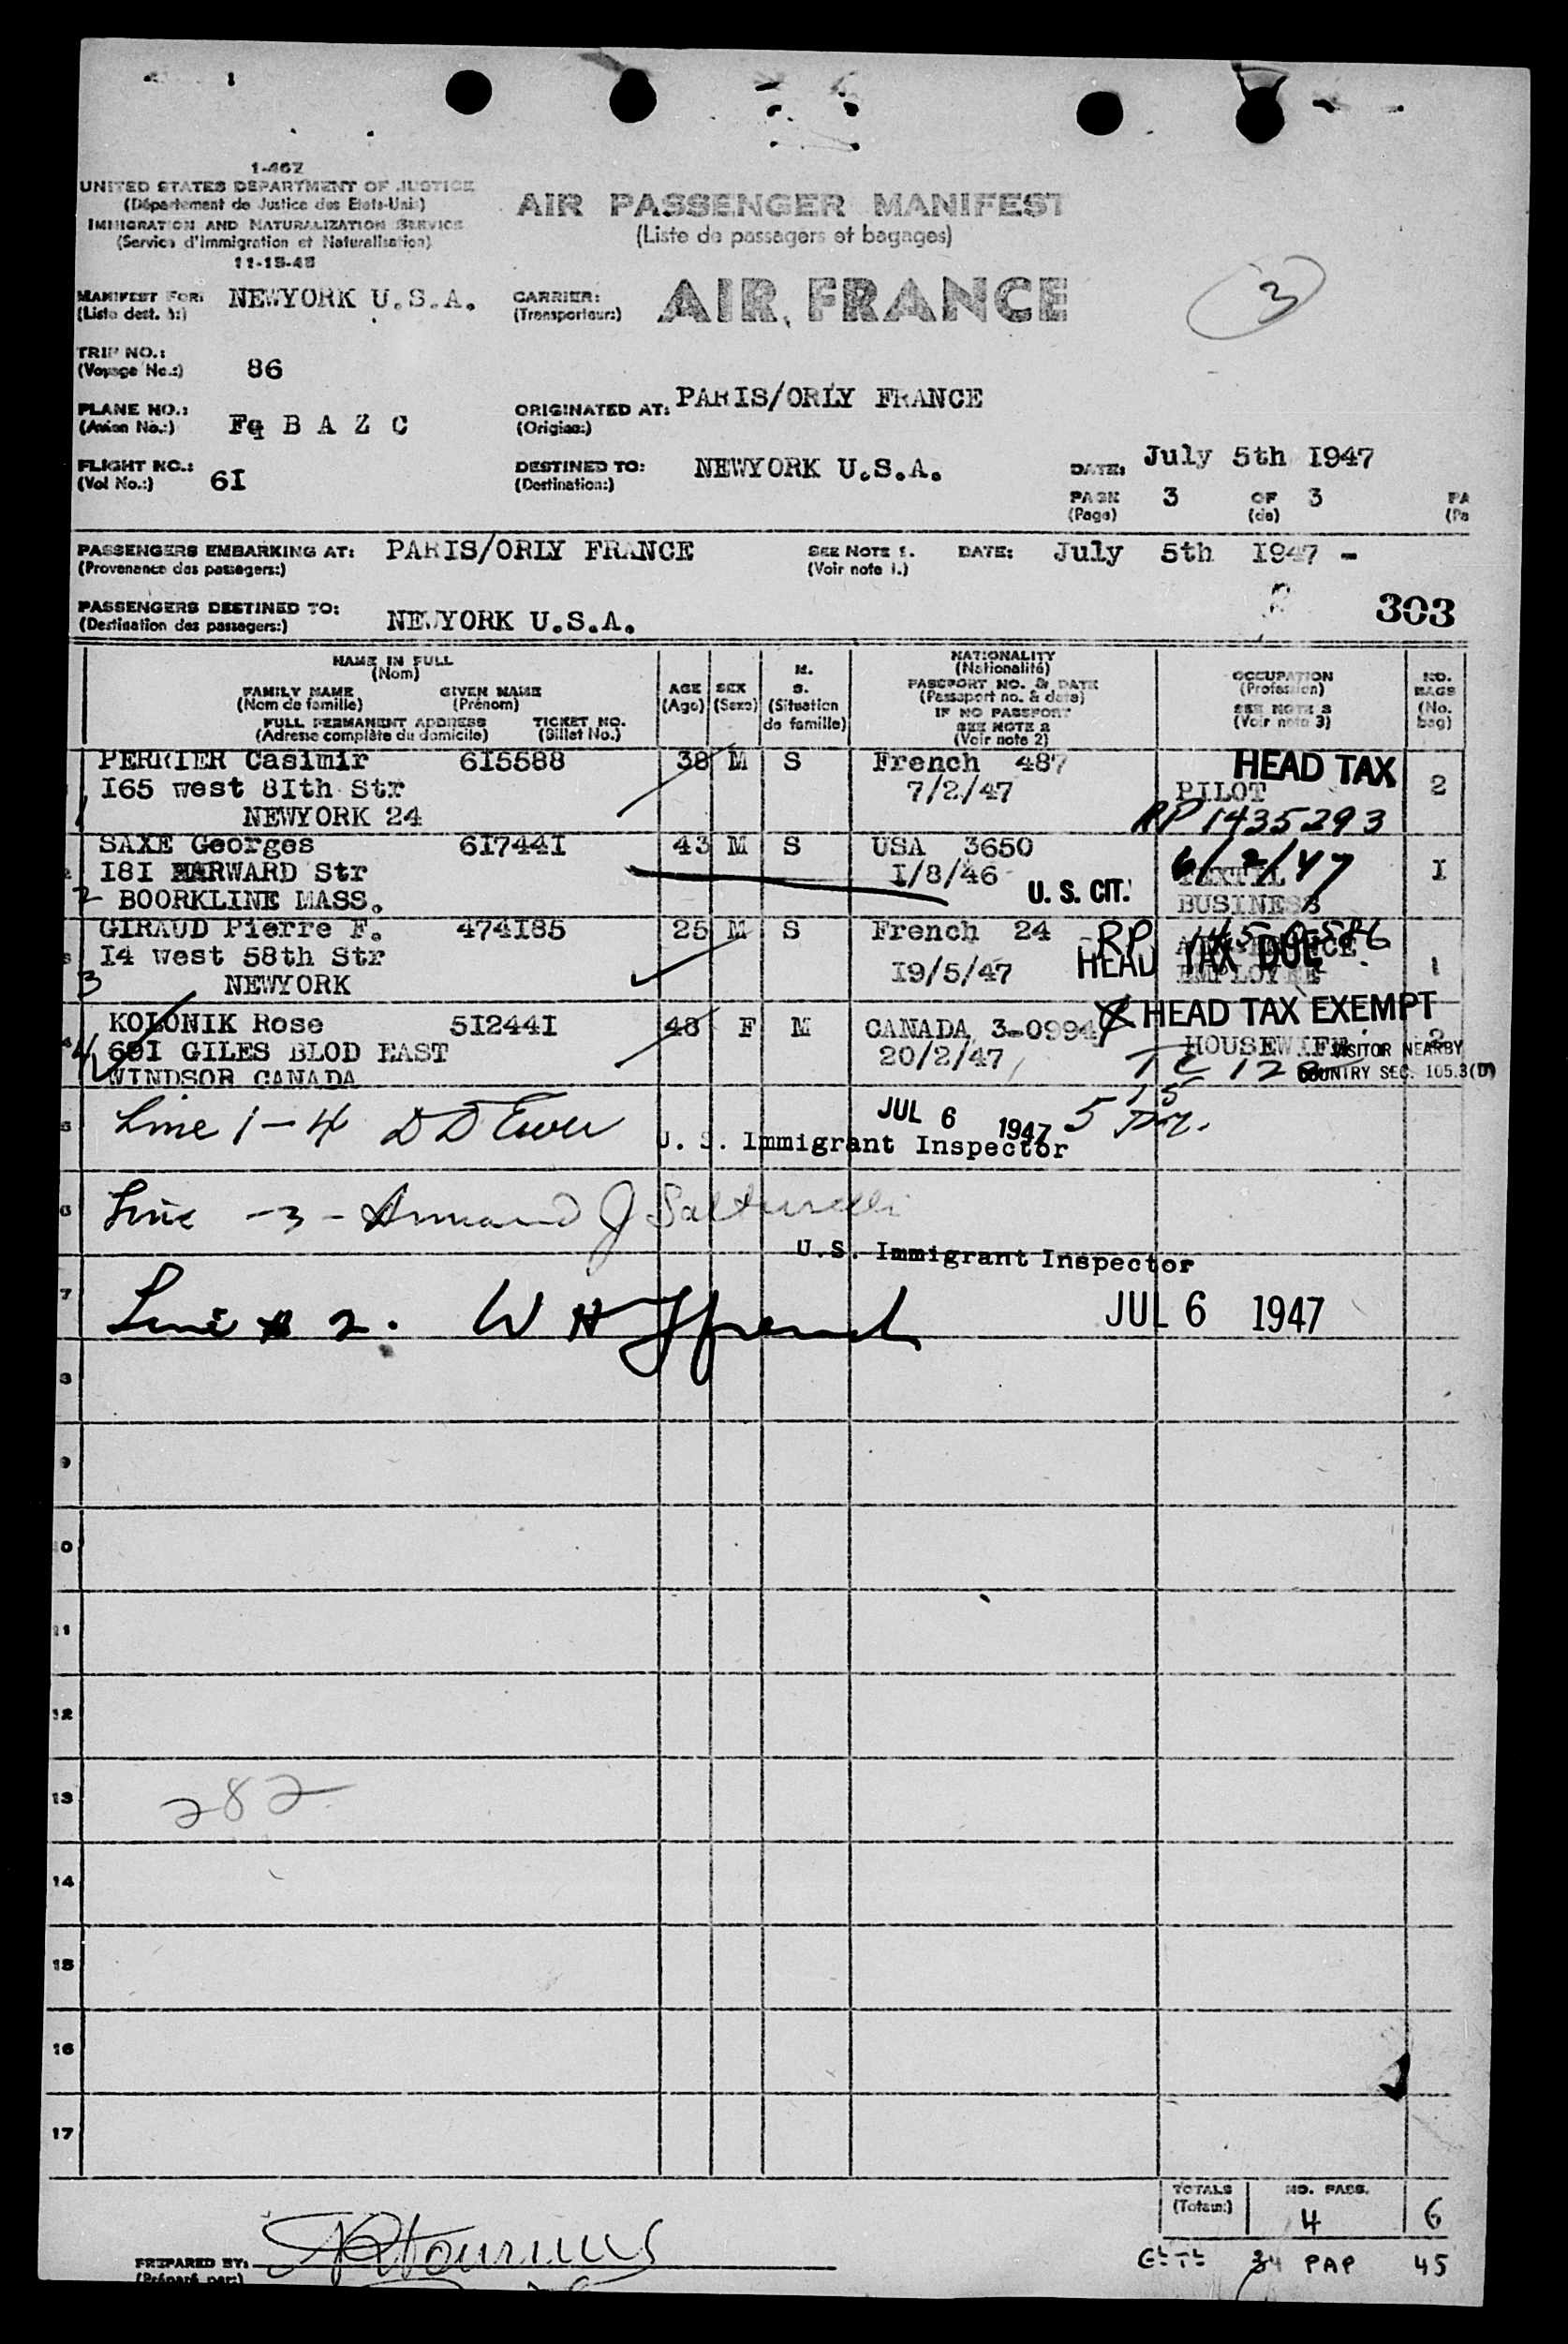 1-462
UNITED STATES DEPARTMENT OF JUSTICE
(Département de Justice des Etats-Unis)
IMMIGRATION AND NATURALIZATION SERVICE
(Service d'immigration et Naturalisation)
11-15-45
AIR PASSENGER MANIFEST
(Liste de passagers et bagages)
3
MANIFEST FOR: NEWYORK U.S.A.
(Liste dest. à:)
CARRIER: AIR FRANCE
(Transporteur:)
TRIP NO.: 86
(Voyage No.:)
PLANE NO.: Fq B A Z C
(Avion No.:)
ORIGINATED AT: PARIS/ORLY FRANCE
(Origine:)
FLIGHT NO.: 6I
(Vol No.:)
DESTINED TO: NEWYORK U.S.A.
(Destination:)
DATE: July 5th I947
PAGE 3 OF 3 PA
(Page) (de) (Pa
PASSENGERS EMBARKING AT: PARIS/ORLY FRANCE SEE NOTE 1. DATE: July 5th I947 -
(Provenance des passagers:) (Voir note 1.)
PASSENGERS DESTINED TO: NEWYORK U.S.A. 303
(Destination des passagers:)
NAME IN FULL
(Nom)
FAMILY NAME GIVEN NAME
(Nom de famille) (Prénom)
FULL PERMANENT ADDRESS TICKET NO.
(Adresse complète du domicile) (Billet No.)
AGE
(Age)
SEX
(Sexe)
M.
S.
(Situation
de famille)
NATIONALITY
(Nationalité)
PASSPORT NO. & DATE
(Passeport no. & date)
IF NO PASSPORT
SEE NOTE 2
(Voir note 2)
OCCUPATION
(Profession)
SEE NOTE 3
(Voir note 3)
NO.
BAGS
(No.
bag)
PERRIER Casimir 6I5588 38 M S French 487 HEAD TAX
I65 west 8Ith Str 7/2/47 PILOT 2
1 NEWYORK 24 RP 1435293
SAXE Georges 6I744I 43 M S USA 3650 6/2/47
I8I HARWARD Str I/8/46 TEXTIL I
2 BOORKLINE MASS. U. S. CIT. BUSINESS
GIRAUD Pierre F. 474I85 25 M S French 24 RP
I4 west 58th Str I9/5/47 HEAD TAX DUE
3 NEWYORK EMPLOYEE 1
KOLONIK Rose 5I244I 48 F M CANADA 3-0994 HEAD TAX EXEMPT
4 60I GILES BLOD EAST 20/2/47 HOUSEWIFE 2
VISITOR NEARBY
WINDSOR CANADA COUNTRY SEC. 105.3(D)
5 Line 1-4 JUL 6 1947 5 15 PM.
U. S. Immigrant Inspector
6 Line -3- Armand J
U.S. Immigrant Inspector
7 Line 2. W H JUL 6 1947
8
9
10
11
12
13 282
14
15
16
17
TOTALS NO. PASS.
(Totaux:) 4 6
PREPARED BY:
(Préparé par:)
34 PAP 45